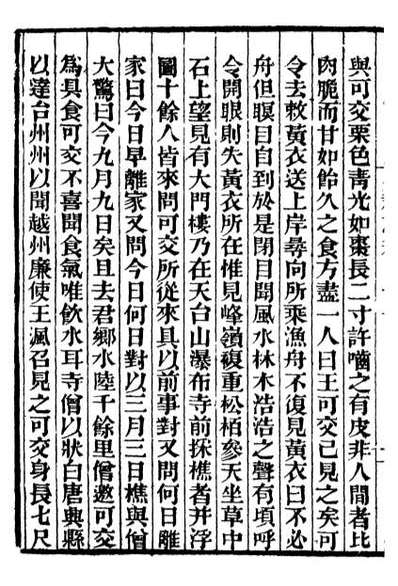 與可交栗色青光如棗長二寸許嚙之有皮非人間者比
肉脆而甘如飴久之食方盡一人曰王可交已見之矣可
令去敕黃衣送上岸尋向所乘漁舟不復見黃衣曰不必
舟但瞑目自到於是閉目聞風水林木浩浩之聲有頃呼
令開眼則失黃衣所在惟見峰嶺複重松栢參天坐草中
石上望見有大門樓乃在天台山瀑布寺前採樵者并浮
圖十餘人皆來問可交所從來具以前事對又問何日離
家曰今日早離家又問今日何日對以三月三日樵與僧
大驚曰今九月九日矣且去君鄉水陸千餘里僧邀可交
為具食可交不喜聞食氣唯飲水耳寺僧以狀白唐興縣
以達台州州以聞越州廉使王渢召見之可交身長七尺